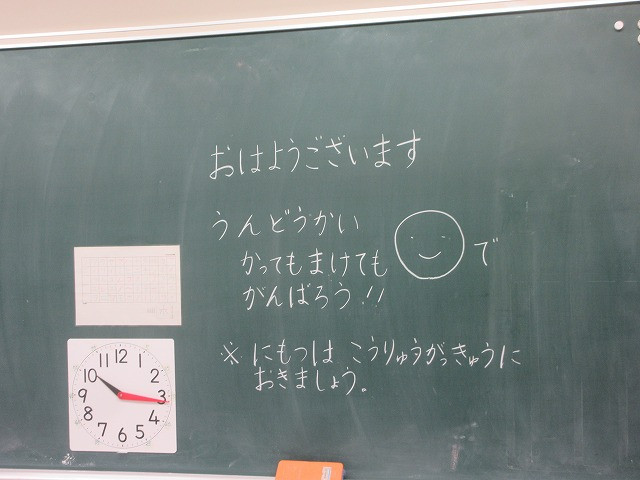 おはようございます
うんどうかい
かってもまけても で
がんばろう!!
※ にもつは こうりゅうがっきゅうに
おきましょう。
12
11 1
10 2
9 3
8 4
7 5
6